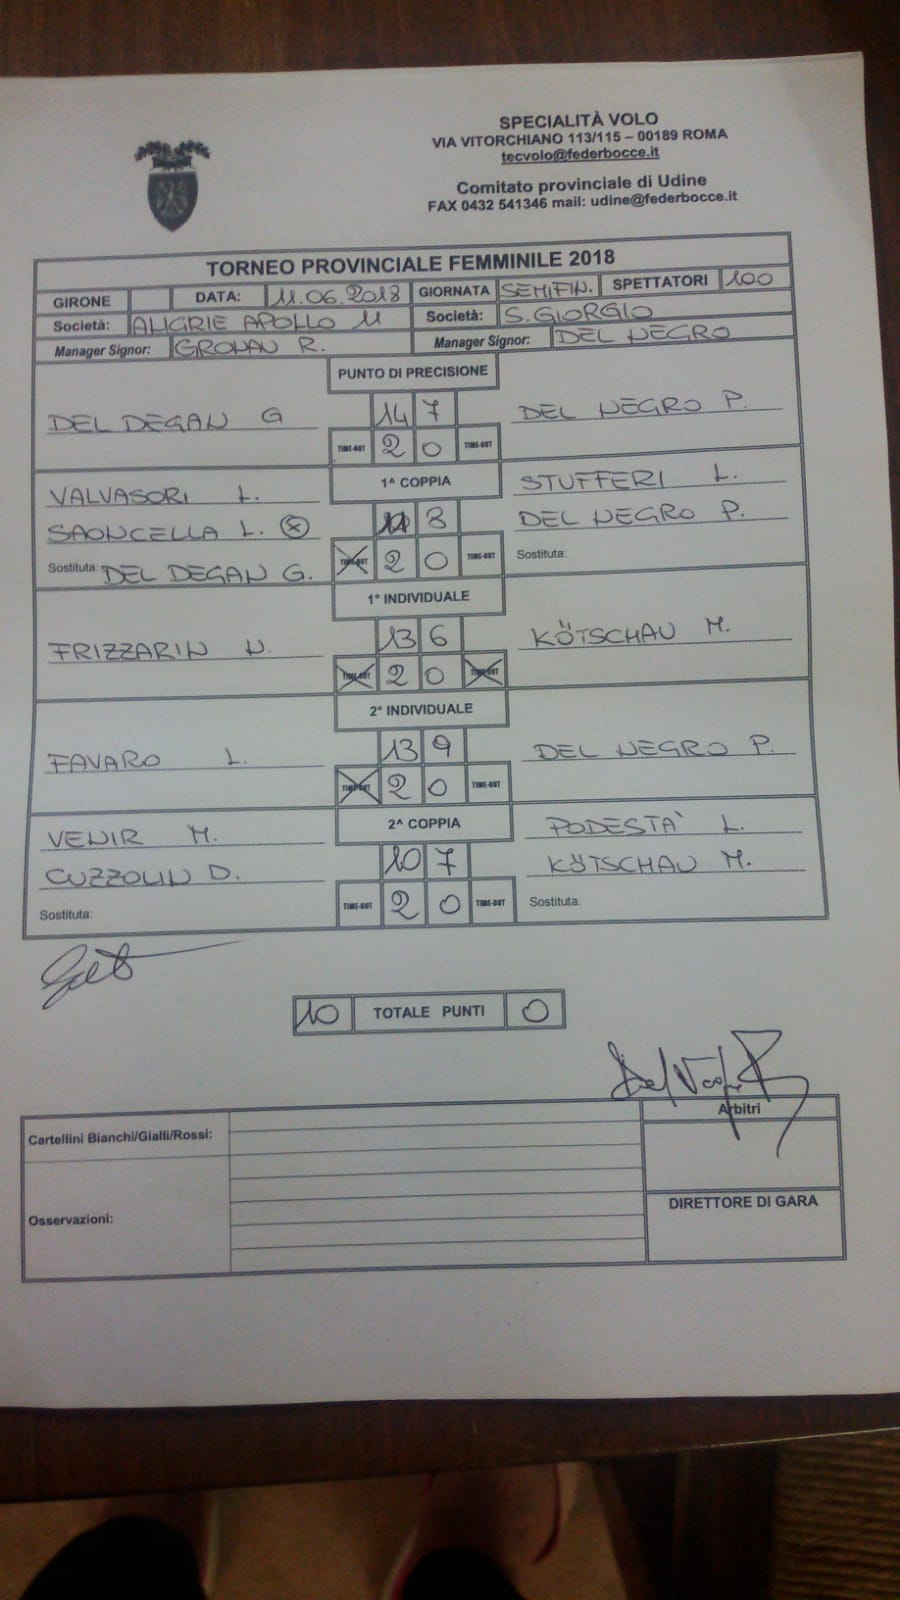 SPECIALITÀ VOLO
VIA VITORCHIANO 113/115 – 00189 ROMA
tecvolo@federbocce.it
Comitato provinciale di Udine
FAX 0432 541346 mail: udine@federbocce.it
TORNEO PROVINCIALE FEMMINILE 2018
GIRONE DATA: 11.06.2018 GIORNATA SEMIFIN. SPETTATORI 100
Società: ALIGRIE APOLLO 11 Società: S. GIORGIO
Manager Signor: GROMAN R. Manager Signor: DEL NEGRO
PUNTO DI PRECISIONE
DEL DEGAN G 14 7 DEL NEGRO P.
TIME-OUT 2 0 TIME-OUT
1^ COPPIA
VALVASORI L. STUFFERI L.
SAONCELLA L. 8 DEL NEGRO P.
Sostituta: DEL DEGAN G. TIME-OUT 2 0 TIME-OUT Sostituta:
1° INDIVIDUALE
FRIZZARIN N. 13 6 KÖTSCHAU M.
TIME-OUT 2 0 TIME-OUT
2° INDIVIDUALE
FAVARO L. 13 9 DEL NEGRO P.
TIME-OUT 2 0 TIME-OUT
2^ COPPIA
VENIR M. PODESTA' L.
CUZZOLIN D. 10 7 KÖTSCHAU M.
Sostituta: TIME-OUT 2 0 TIME-OUT Sostituta:
10 TOTALE PUNTI 0
Arbitri
Cartellini Bianchi/Gialli/Rossi:
DIRETTORE DI GARA
Osservazioni: